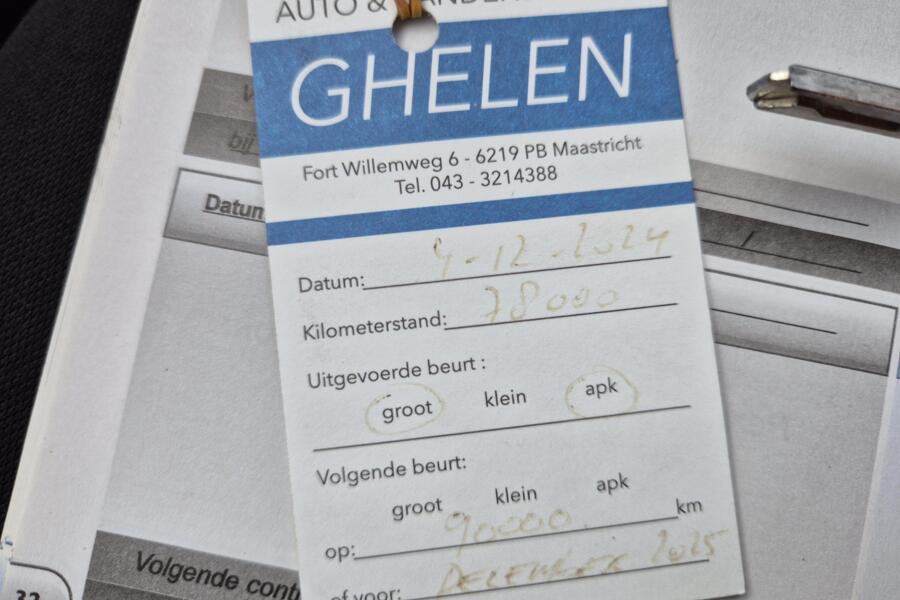 AUTO &
GHELEN
Fort Willemweg 6 - 6219 PB Maastricht
Tel. 043 - 3214388
Datum: 4-12-2024
Kilometerstand: 78000
Uitgevoerde beurt :
groot klein apk
Volgende beurt:
groot klein apk
op: 90000 km
of voor: DECEMBER 2025
bij
Datum
Volgende cont
32